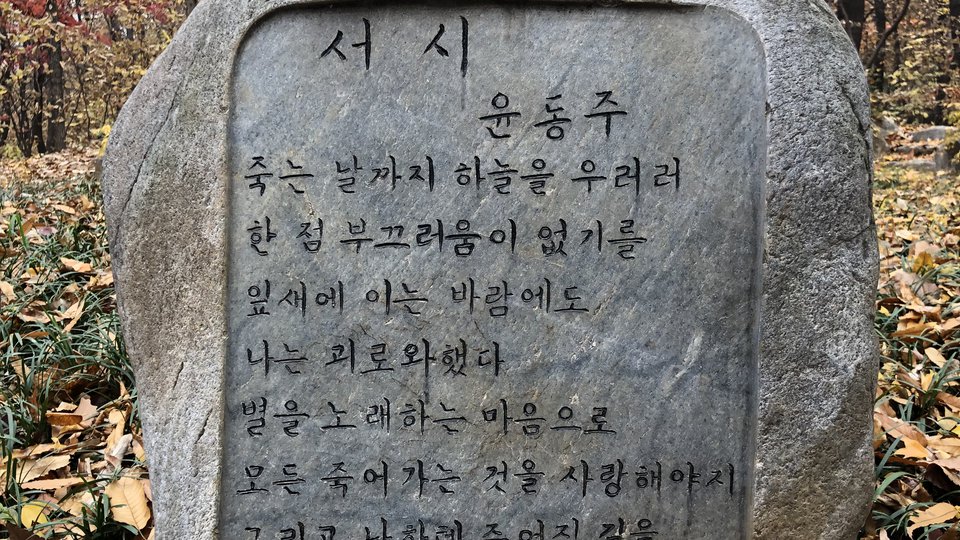 서 시
윤동주
죽는 날까지 하늘을 우러러
한 점 부끄러움이 없기를
잎새에 이는 바람에도
나는 괴로와했다
별을 노래하는 마음으로
모든 죽어가는 것을 사랑해야지
그리고 나한테 주어진 길을